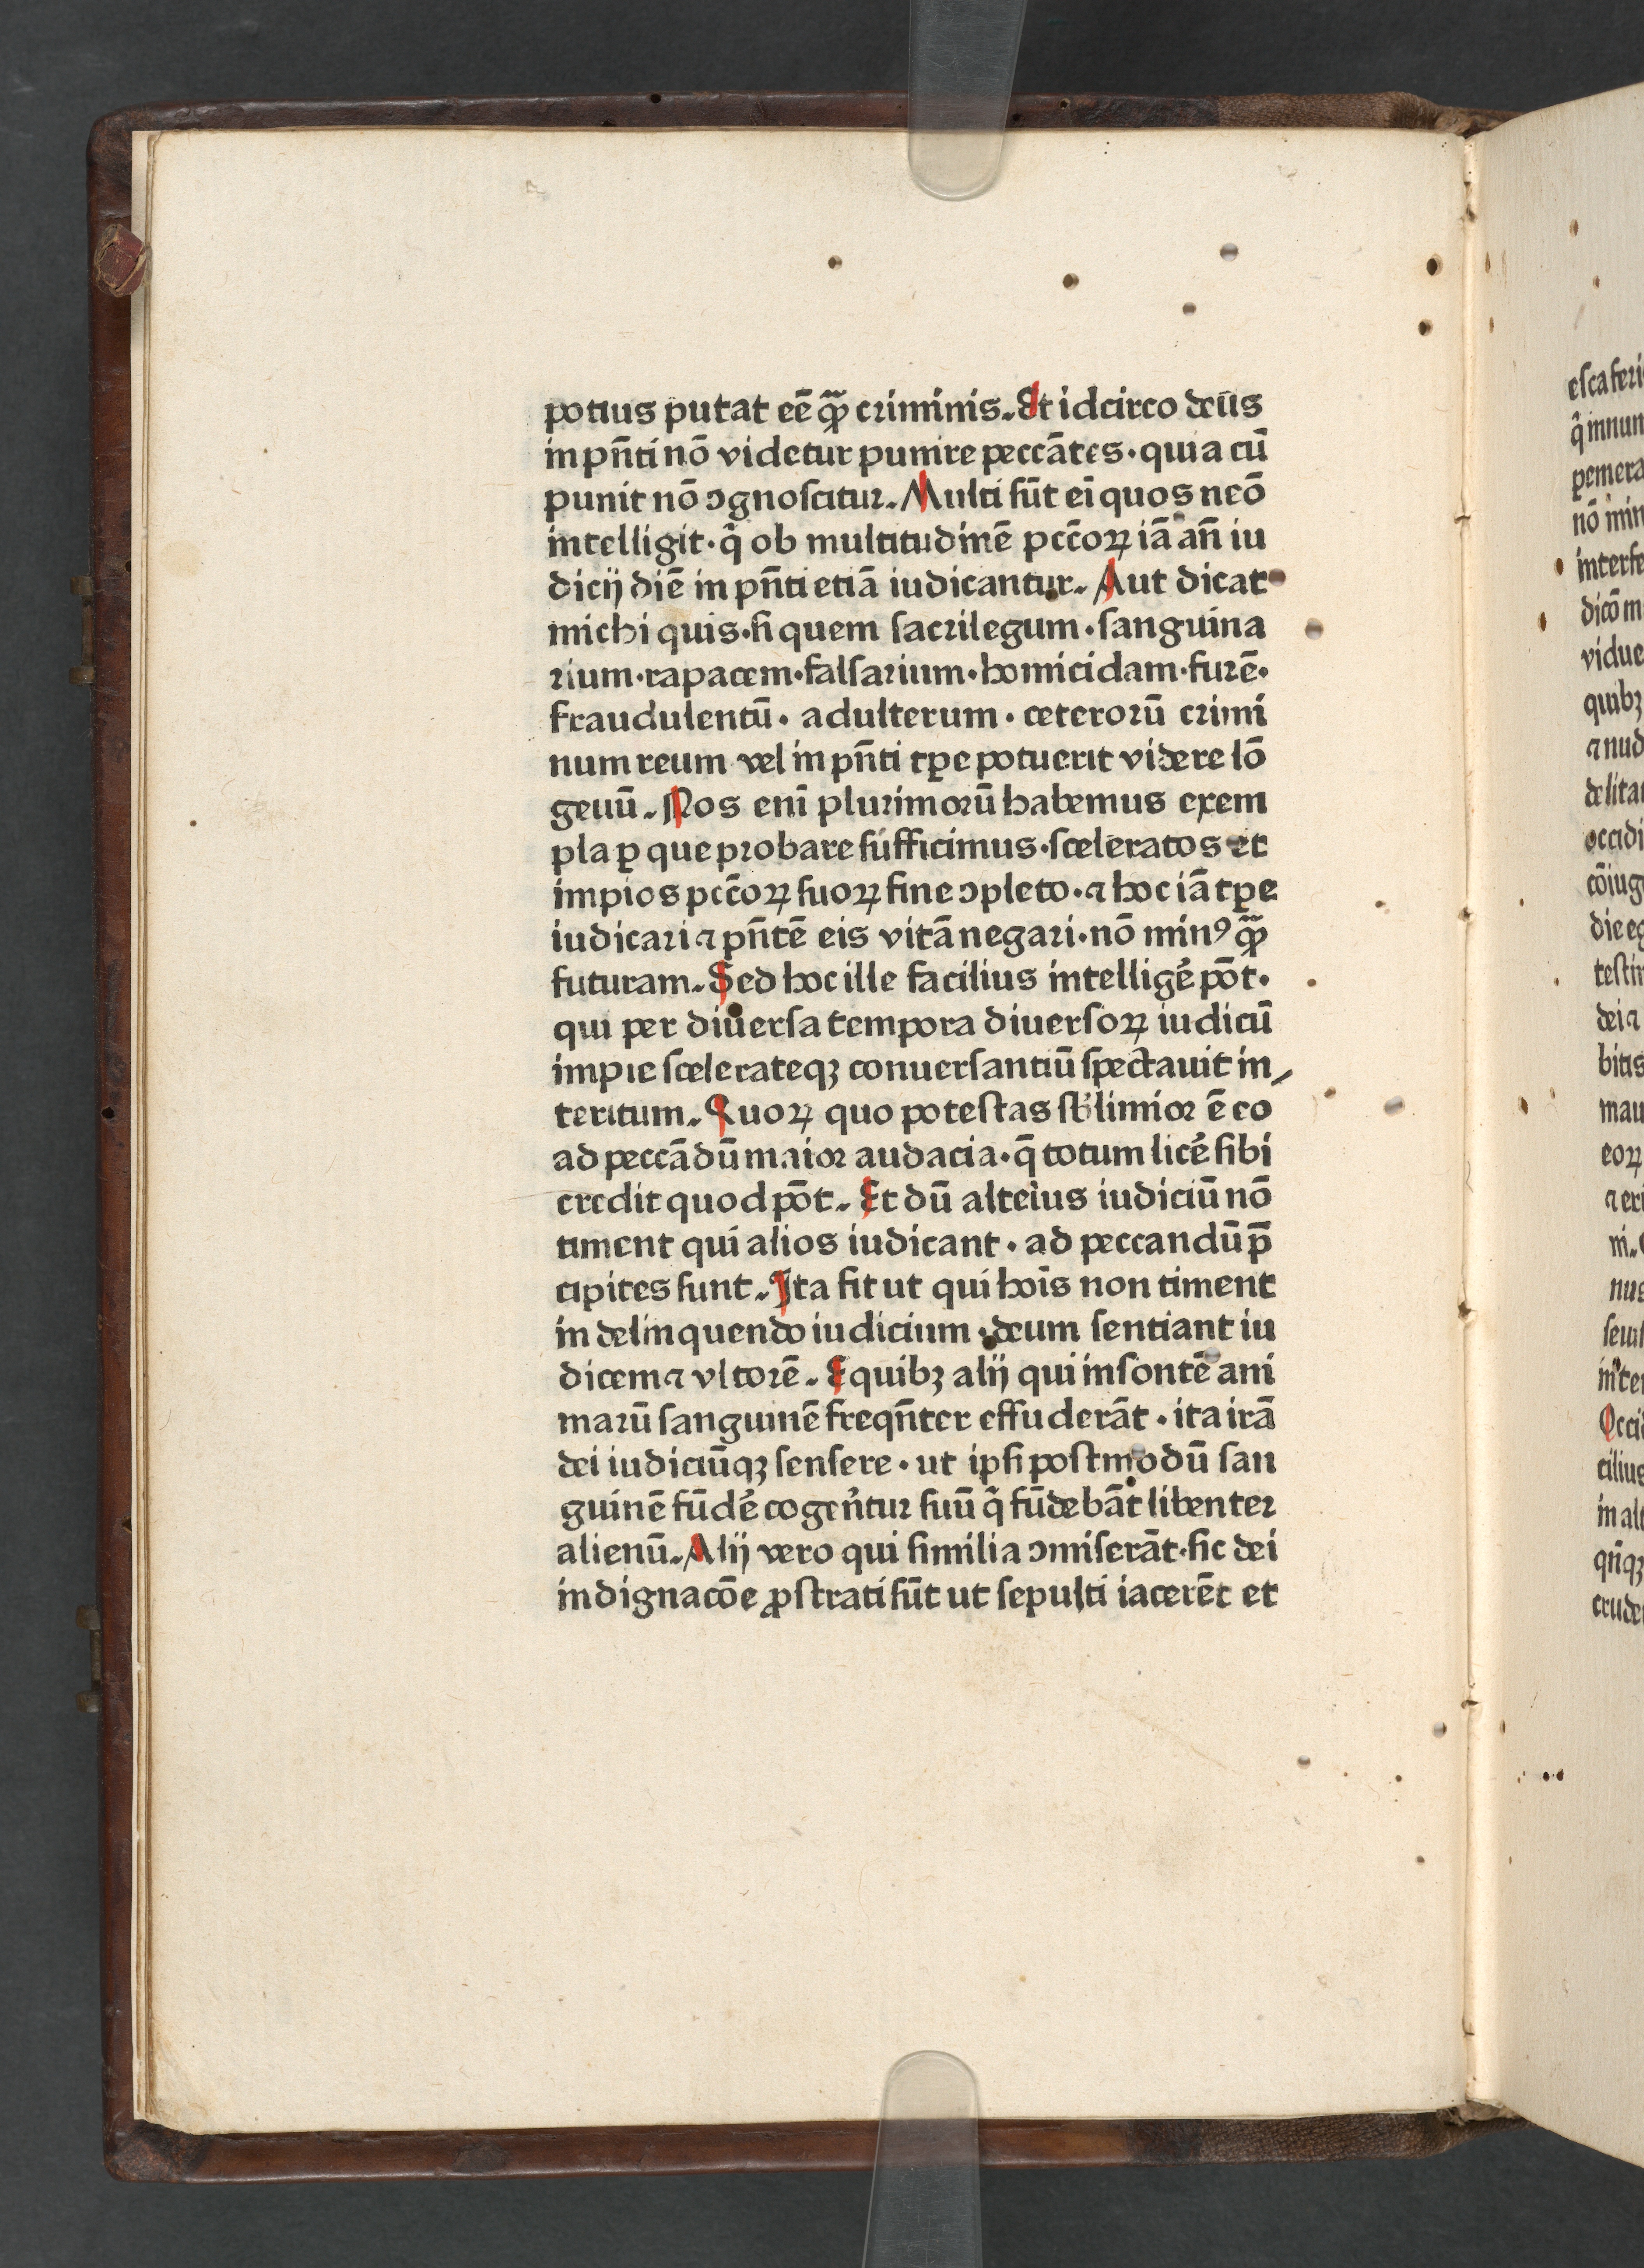 potius putat eē ꝙ̄ criminis. Et idcirco deus
in pn̄ti nō videtur punire peccātes · quia cū
punit nō ↄgnoſcitur. Multi ſūt eī quos neō
intelligit · q̄ ob multitudinē pcc̄oꝝ iā an̄ iu
dicij diē in pn̄ti etiā iudicantur. Aut dicat
michi quis · ſi quem ſacrilegum · ſanguina
rium · rapacem · falſarium · homicidam · furē ·
fraudulentū · adulterum · ceterorū crimi
num reum vel in pn̄ti tꝑe potuerit videre lō
geuū. Nos enī plurimorū habemus exem
pla ꝑ que probare ſufficimus · ſceleratos et
impios pcc̄oꝝ ſuoꝝ fine ↄpleto · ⁊ hoc iā tꝑe
iudicari ⁊ pn̄tē eis vitā negari · nō minꝰ ꝙ̄
futuram. Sed hoc ille facilius intelligē pōt ·
qui per diuerſa tempora diuerſoꝝ iudicū
impie ſcelerateqꝫ conuerſantiū ſpectauit in⸝
teritum. Quoꝝ quo poteſtas ſb̄limior ē eo
ad peccādū maior audacia · q̄ totum licē ſibi
credit quod pōt. Et dū alteius iudiciū nō
timent qui alios iudicant · ad peccandū p̄
cipites ſunt. Ita fit ut qui hoīs non timent
in delinquendo iudicium · deum ſentiant iu
dicem ⁊ vltorē. E quibꝫ alij qui inſontē ani
marū ſanguinē freqn̄ter effuderāt · ita irā
dei iudiciūqꝫ ſenſere · ut ipſi poſtmodū ſan
guinē fūdē cogen̄tur ſuū q̄ fūdebāt libenter
alienū. Alij vero qui ſimilia ↄmiſerāt · ſic dei
indignacōe ꝓſtrati ſūt ut ſepulti iacerēt et